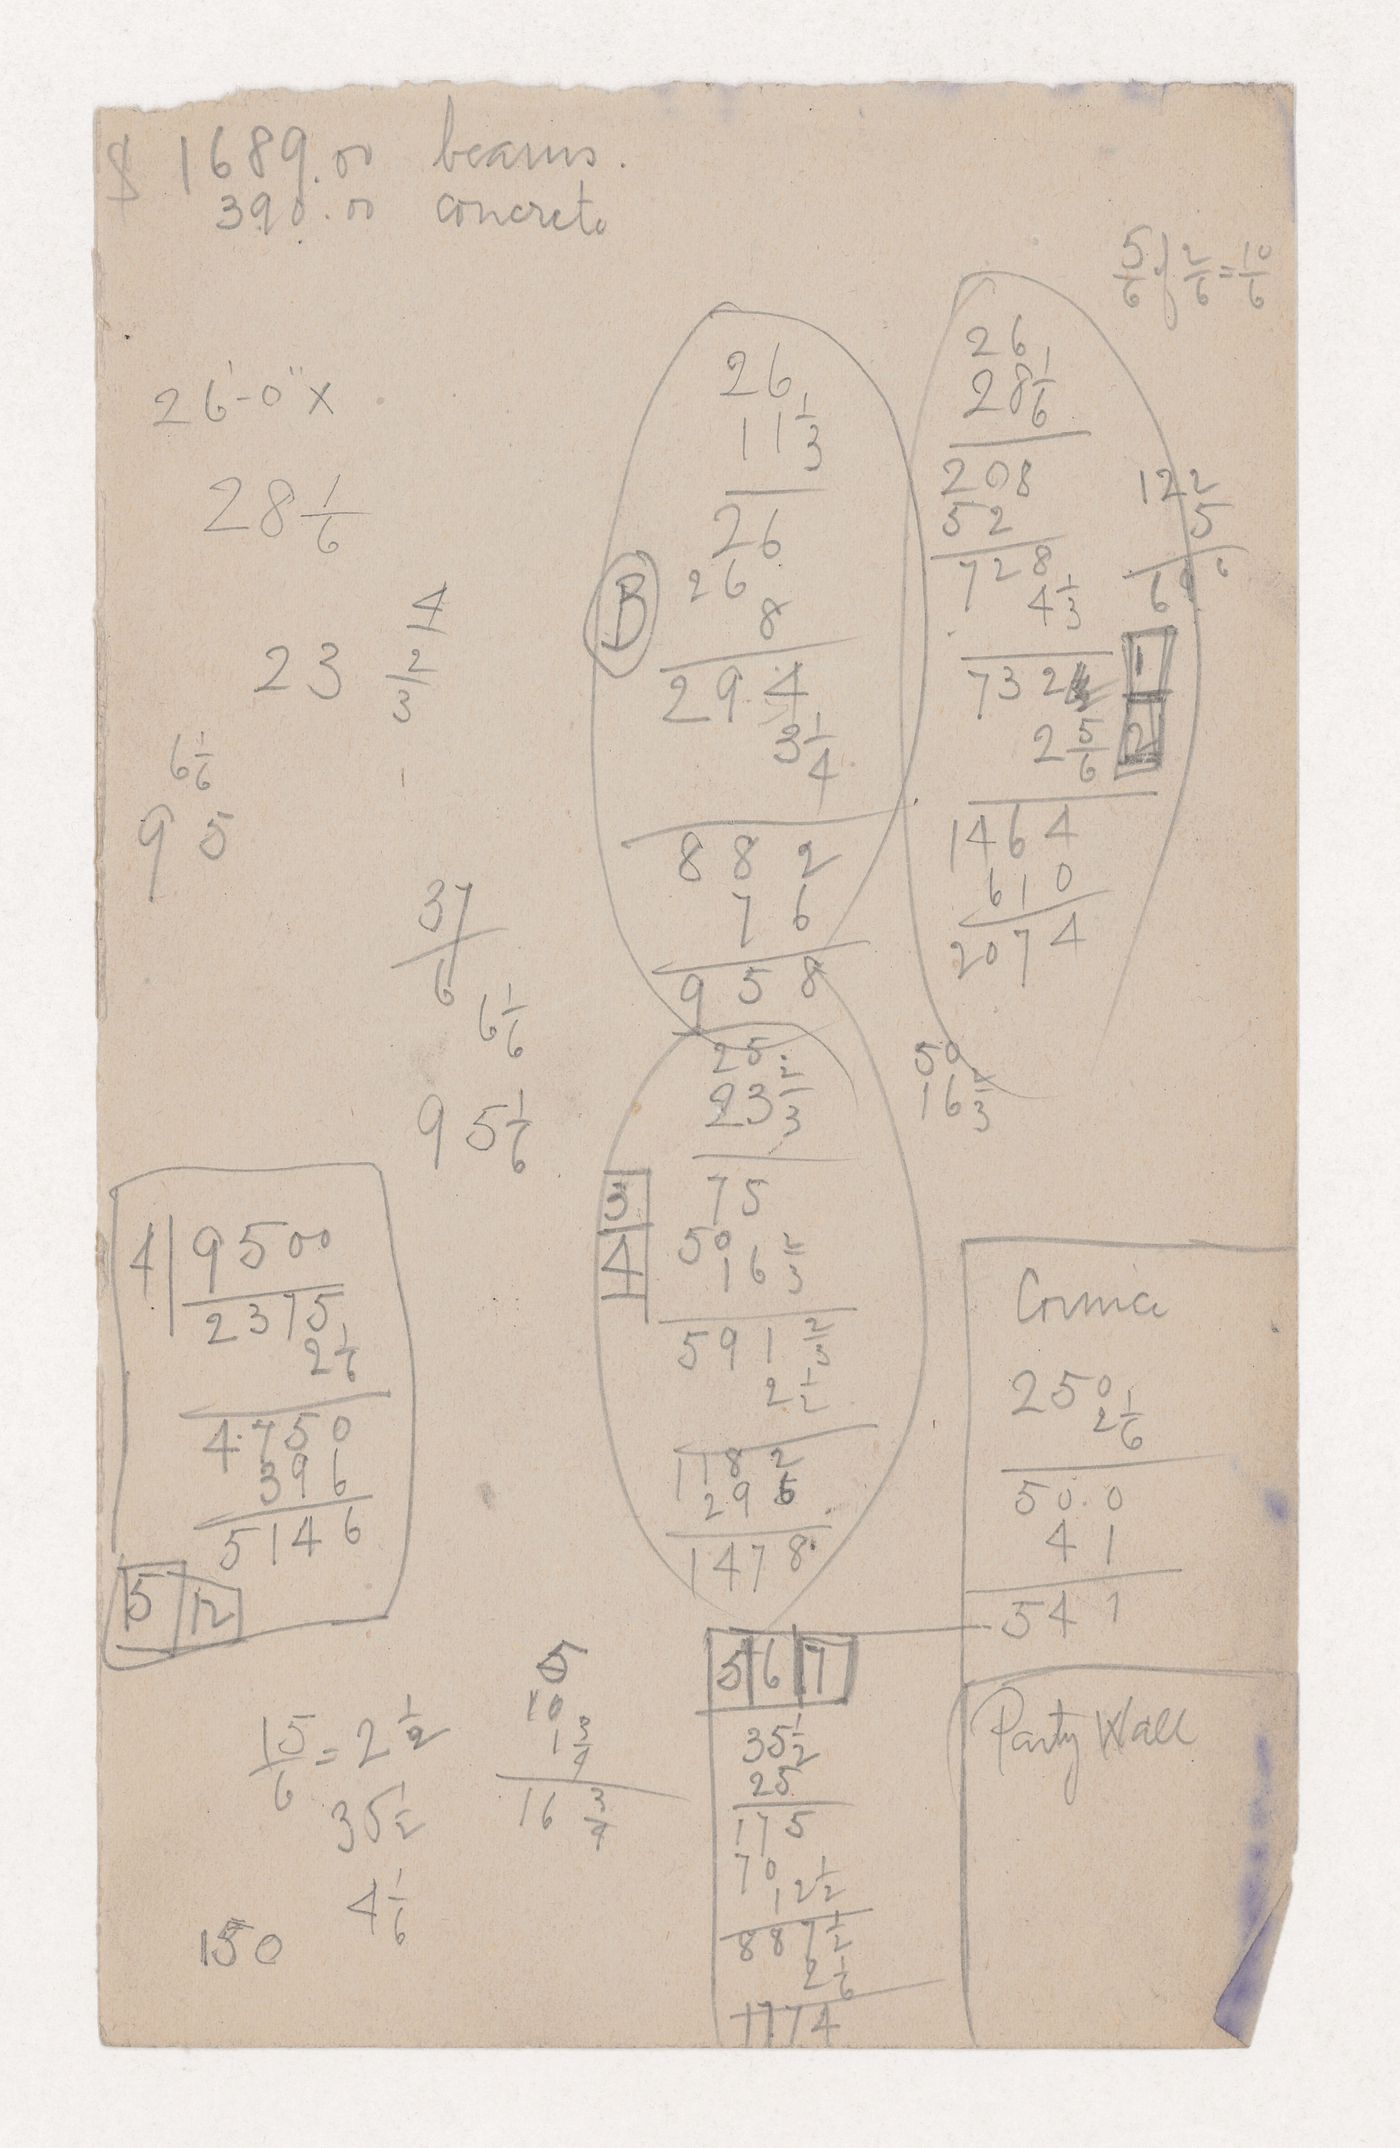 $ 1689.00 beams.
390.00 concrete
5/6 of 2/6 = 10/6
26'-0" x
28 1/6
23
4
2/3
6 1/6
9 5
37/6
6 1/6
9 5 1/6
B
26
11 1/3
26
26
8
294
3 1/4
882
76
958
26
28 1/6
208
52
728
4 1/3
732
2 5/6
1464
610
2074
122
5
1
2
25
23 2/3
75
50
16 2/3
591 2/3
2 1/2
1182
296
1478
3
4
50
16 2/3
4 | 9500
2375
2 1/6
4750
396
5146
5 12
Cornice
250
2 1/6
500
41
541
Party Wall
15/6 = 2 1/2
35 1/2
4 1/6
150
5
10
1 3/4
16 3/4
5 6 7
35 1/2
25
175
70
12 1/2
887 1/2
2 1/6
1774